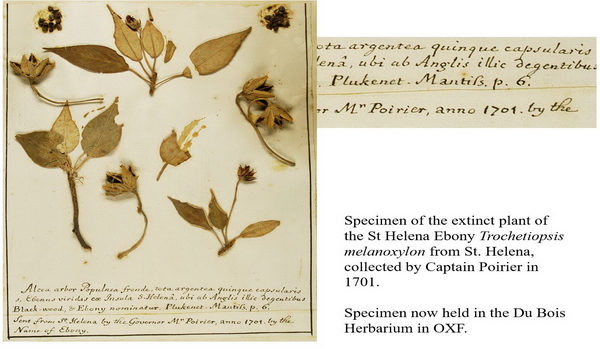 Alcea arbor Populnea fronde, tota argentea quinque capsularis
s. Ebenus virides ex Insula S. Helenâ, ubi ab Anglis illic degentibus
Black-wood, & Ebony nominatur. Plukenet. Mantiſs. p. 6.
Sent from St. Helena by the Governor Mr. Poirier, anno 1701. by the
Name of Ebony.
tota argentea quinque capsularis
elenâ, ubi ab Anglis illic degentibus
. Plukenet. Mantiſs. p. 6.
or Mr. Poirier, anno 1701. by the
Specimen of the extinct plant of
the St Helena Ebony Trochetiopsis
melanoxylon from St. Helena,
collected by Captain Poirier in
1701.
Specimen now held in the Du Bois
Herbarium in OXF.